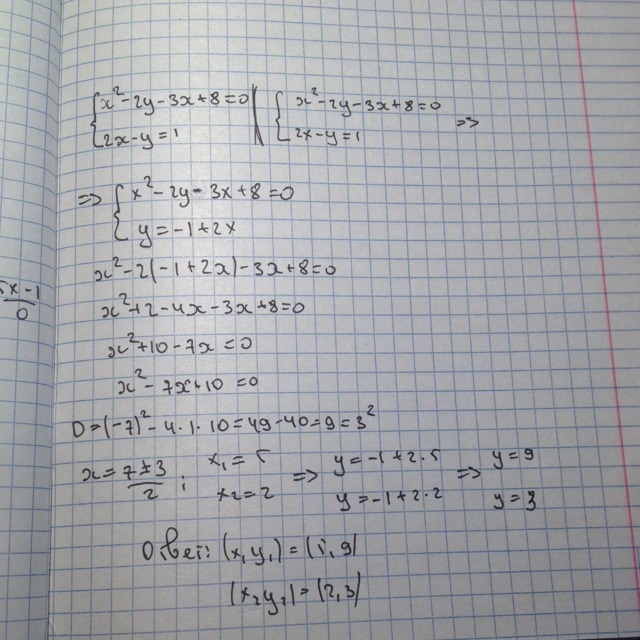 { x² - 2y - 3x + 8 = 0 | { x² - 2y - 3x + 8 = 0
{ 2x - y = 1 | { 2x - y = 1 =>
=> { x² - 2y - 3x + 8 = 0
{ y = -1 + 2x
x² - 2(-1 + 2x) - 3x + 8 = 0
x² + 2 - 4x - 3x + 8 = 0
x² + 10 - 7x = 0
x² - 7x + 10 = 0
D = (-7)² - 4·1·10 = 49 - 40 = 9 = 3²
x = (7 ± 3)/2 ; x₁ = 5 => y = -1 + 2·5 => y = 9
x₂ = 2 y = -1 + 2·2 y = 3
Ответ: (x₁y₁) = (5, 9)
(x₂y₂) = (2, 3)
x - 1
0